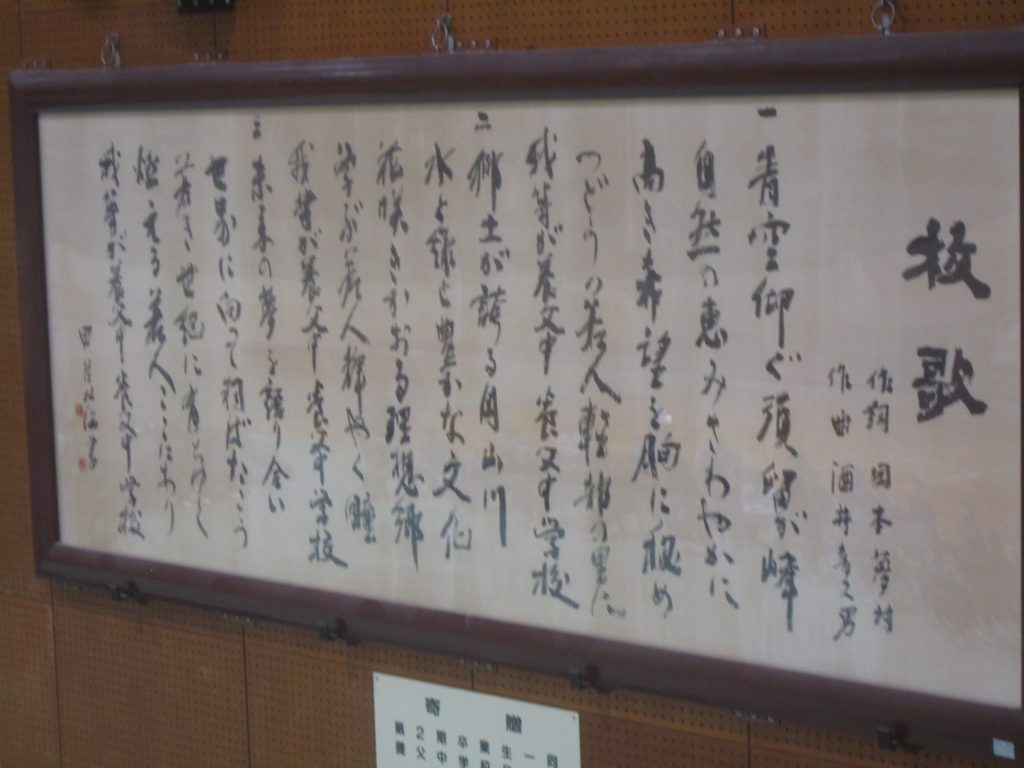 校歌
作詞 田本夢村
作曲 酒井
一 青空仰ぐ須留が峰
自然の恵みさわやかに
高き希望を胸に秘め
つどうの若人
我等が養父中 養父中学校
二 郷土が誇る円山川
水と緑と豊かな文化
花咲きかおる理想郷
学ぶ若人輝やく瞳
我等が養父中 養父中学校
三 未来の夢を語り合い
世界に向って羽ばたこう
若き世紀に
燃える若人ここにあり
我等が養父中 養父中学校
寄贈
第2期卒業生一同
養父中学校